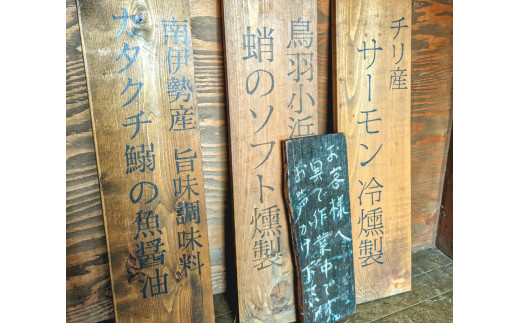 チリ産
サーモン 冷燻製
鳥羽小浜
蛸のソフト燻製
南伊勢産 旨味調味料
カタクチ鰯の魚醤油
お客様へ
奥で作業中です
お声かけ下さい